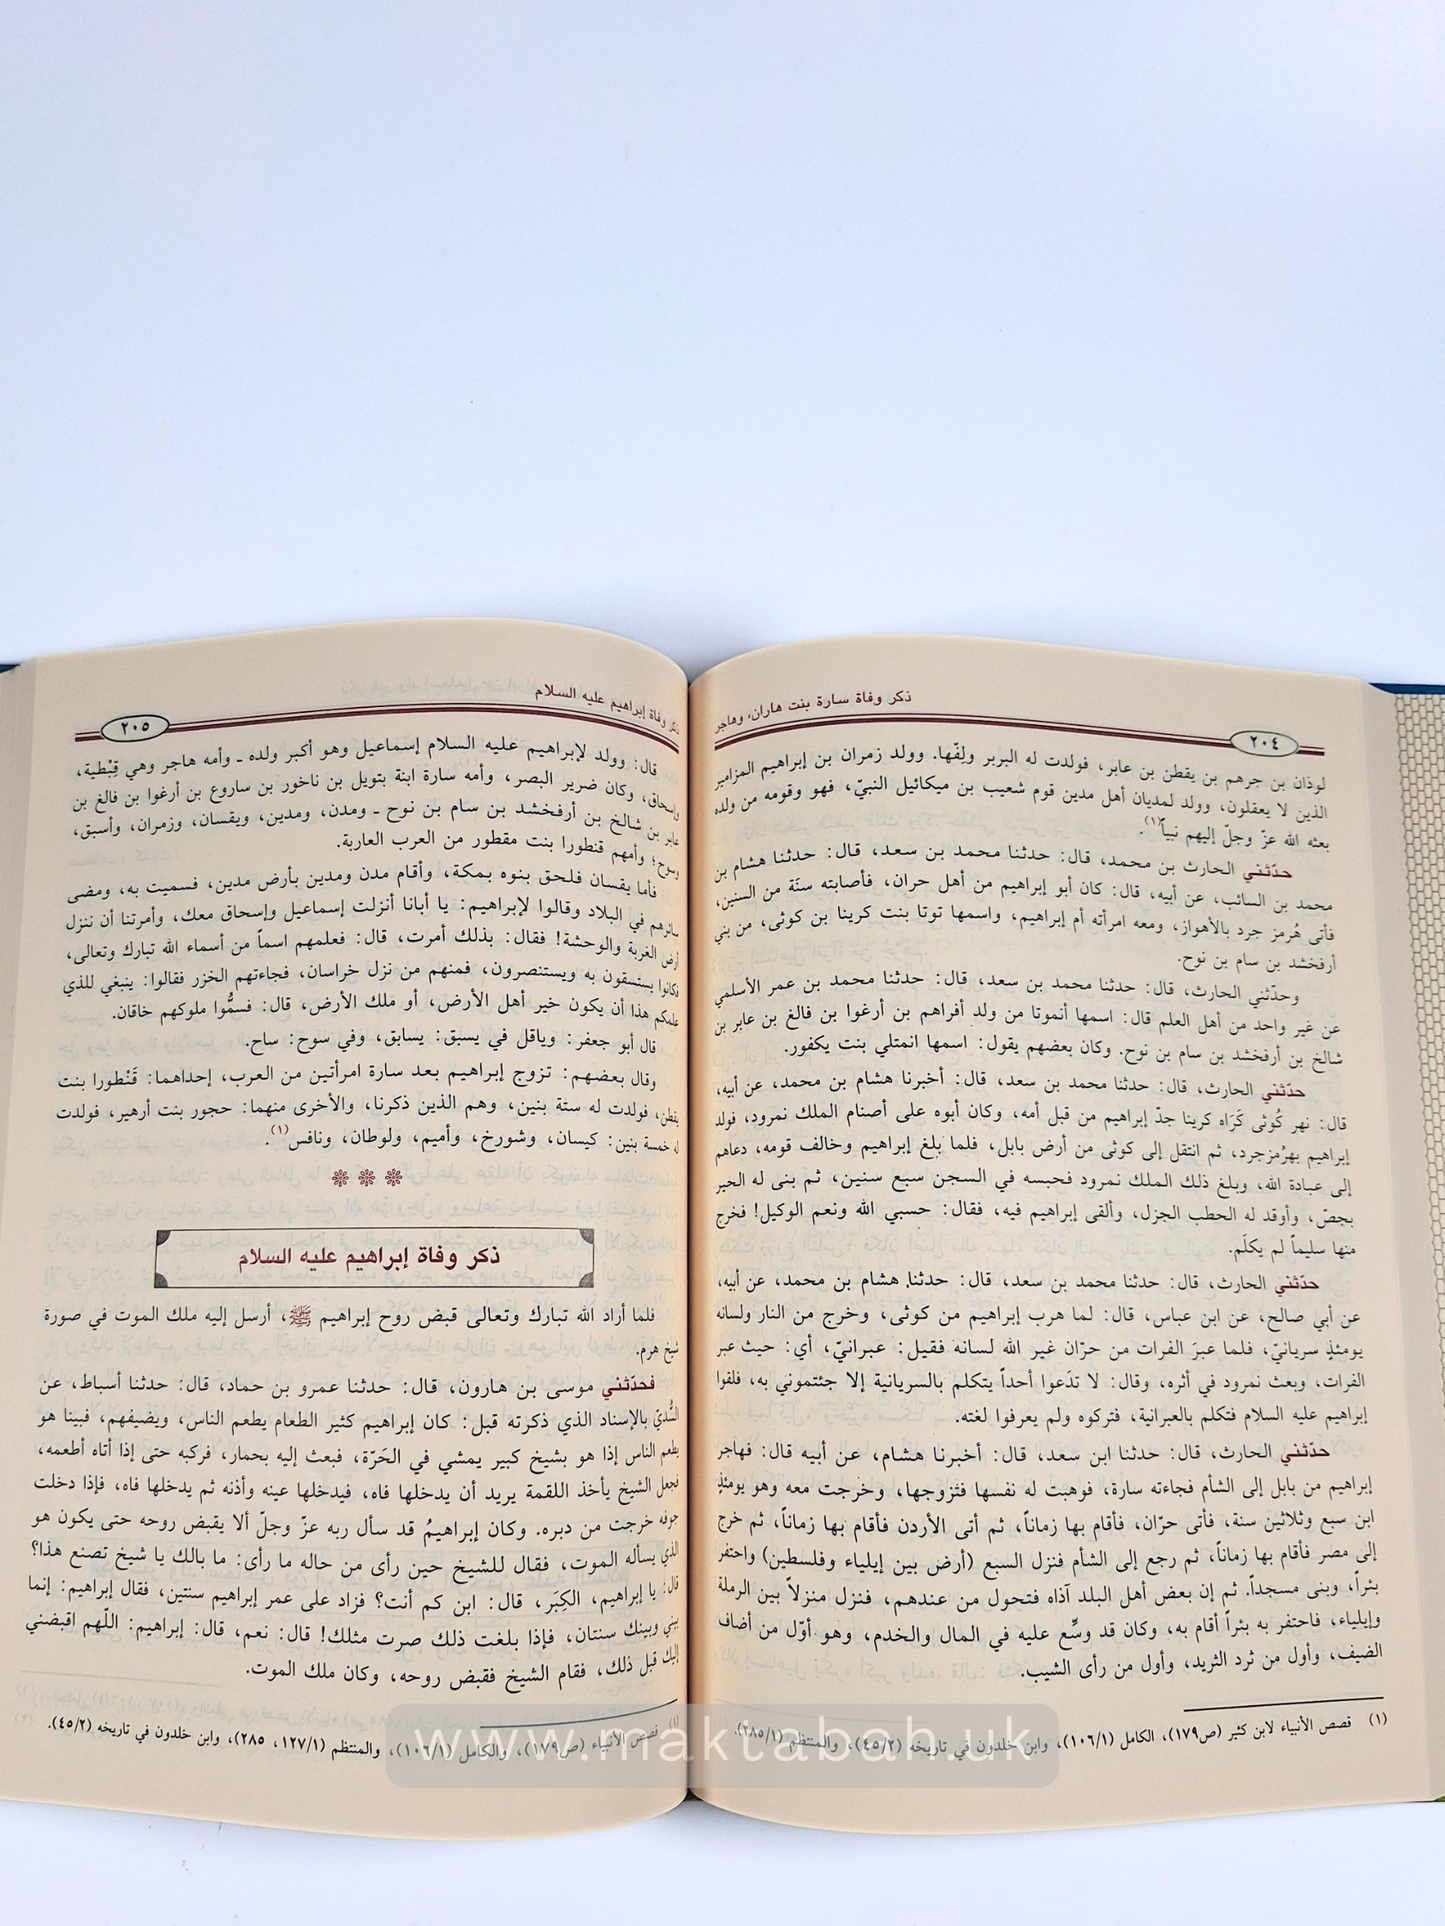 ذكر وفاة سارة بنت هاران، وهاجر
٢٠٤
لوذان بن جرهم بن يقطن بن عابر، فولدت له البربر ولِفّها. وولد زمران بن إبراهيم المزامير
الذين لا يعقلون، وولد لمديان أهل مدين قوم شعيب بن ميكائيل النبيّ، فهو وقومه من ولده
بعثه الله عزّ وجلّ إليهم نبياً(١).
حدّثني الحارث بن محمد، قال: حدثنا محمد بن سعد، قال: حدثنا هشام بن
محمد بن السائب، عن أبيه، قال: كان أبو إبراهيم من أهل حران، فأصابته سنَة من السنين،
فأتى هُرمز جرد بالأهواز، ومعه امرأته أم إبراهيم، واسمها توتا بنت كرينا بن كوثى، من بني
أرفخشد بن سام بن نوح.
وحدّثني الحارث، قال: حدثنا محمد بن سعد، قال: حدثنا محمد بن عمر الأسلمي
عن غير واحد من أهل العلم قال: اسمها أنموتا من ولد أفراهم بن أرغوا بن فالغ بن عابر بن
شالخ بن أرفخشد بن سام بن نوح. وكان بعضهم يقول: اسمها انمتلي بنت يكفور.
حدّثني الحارث، قال: حدثنا محمد بن سعد، قال: أخبرنا هشام بن محمد، عن أبيه،
قال: نهر كُوثى كَرَاه كرينا جدّ إبراهيم من قبل أمه، وكان أبوه على أصنام الملك نمرود، فولد
إبراهيم بهرُمزجرد، ثم انتقل إلى كوثى من أرض بابل، فلما بلغ إبراهيم وخالف قومه، دعاهم
إلى عبادة الله، وبلغ ذلك الملك نمرود فحبسه في السجن سبع سنين، ثم بنى له الحير
بجصّ، وأوقد له الحطب الجزل، وألقى إبراهيم فيه، فقال: حسبي الله ونعم الوكيل! فخرج
منها سليماً لم يكلَم.
حدّثني الحارث، قال: حدثنا محمد بن سعد، قال: حدثنا هشام بن محمد، عن أبيه،
عن أبي صالح، عن ابن عباس، قال: لما هرب إبراهيم من كوثى، وخرج من النار ولسانه
يومئذٍ سريانيّ، فلما عبرَ الفرات من حرّان غير الله لسانه فقيل: عبرانيّ، أي: حيث عبر
الفرات، وبعث نمرود في أثره، وقال: لا تدَعوا أحداً يتكلم بالسريانية إلا جئتموني به، فلقوا
إبراهيم عليه السلام فتكلم بالعبرانية، فتركوه ولم يعرفوا لغته.
حدّثني الحارث، قال: حدثنا ابن سعد، قال: أخبرنا هشام، عن أبيه قال: فهاجر
إبراهيم من بابل إلى الشأم فجاءته سارة، فوهبت له نفسها فتزوجها، وخرجت معه وهو يومئذٍ
ابن سبع وثلاثين سنة، فأتى حرّان، فأقام بها زماناً، ثم أتى الأردن فأقام بها زماناً، ثم خرج
إلى مصر فأقام بها زماناً، ثم رجع إلى الشأم فنزل السبع (أرض بين إيلياء وفلسطين) واحتفر
بئراً، وبنى مسجداً. ثم إن بعض أهل البلد آذاه فتحول من عندهم، فنزل منزلاً بين الرملة
وإيلياء، فاحتفر به بئراً أقام به، وكان قد وسِّع عليه في المال والخدم، وهو أوّل من أضاف
الضيف، وأول من ثرد الثريد، وأول من رأى الشيب.
(١) قصص الأنبياء لابن كثير (ص١٧٩)، الكامل (١٠٦/١)، وابن خلدون في تاريخه (٤٥/٢)، والمنتظم (٢٨٥/١).
ذكر وفاة إبراهيم عليه السلام
٢٠٥
قال: وولد لإبراهيم عليه السلام إسماعيل وهو أكبر ولده ـ وأمه هاجر وهي قِبْطية،
وإسحاق، وكان ضرير البصر، وأمه سارة ابنة بتويل بن ناخور بن ساروع بن أرغوا بن فالغ بن
عابر بن شالخ بن أرفخشد بن سام بن نوح ـ ومدن، ومدين، ويقسان، وزمران، وأسبق،
وسوح؛ وأمهم قنطورا بنت مقطور من العرب العاربة.
فأما يقسان فلحق بنوه بمكة، وأقام مدن ومدين بأرض مدين، فسميت به، ومضى
سائرهم في البلاد وقالوا لإبراهيم: يا أبانا أنزلت إسماعيل وإسحاق معك، وأمرتنا أن ننزل
أرض الغربة والوحشة! فقال: بذلك أمرت، قال: فعلمهم اسماً من أسماء الله تبارك وتعالى،
فكانوا يستسقون به ويستنصرون، فمنهم من نزل خراسان، فجاءتهم الخزر فقالوا: ينبغي للذي
علمكم هذا أن يكون خير أهل الأرض، أو ملك الأرض، قال: فسمُّوا ملوكهم خاقان.
قال أبو جعفر: وياقل في يسبق: يسابق، وفي سوح: ساح.
وقال بعضهم: تزوج إبراهيم بعد سارة امرأتين من العرب، إحداهما: قَنْطورا بنت
يقطن، فولدت له ستة بنين، وهم الذين ذكرنا، والأخرى منهما: حجور بنت أرهير، فولدت
له خمسة بنين: كيسان، وشورخ، وأميم، ولوطان، ونافس(١).
ذكر وفاة إبراهيم عليه السلام
فلما أراد الله تبارك وتعالى قبض روح إبراهيم ﷺ، أرسل إليه ملك الموت في صورة
شيخ هرم.
فحدّثني موسى بن هارون، قال: حدثنا عمرو بن حماد، قال: حدثنا أسباط، عن
السُّديّ بالإسناد الذي ذكرته قبل: كان إبراهيم كثير الطعام يطعم الناس، ويضيفهم، فبينا هو
يطعم الناس إذا هو بشيخ كبير يمشي في الحَرّة، فبعث إليه بحمار، فركبه حتى إذا أتاه أطعمه،
فجعل الشيخ يأخذ اللقمة يريد أن يدخلها فاه، فيدخلها عينه وأذنه ثم يدخلها فاه، فإذا دخلت
جوفه خرجت من دبره. وكان إبراهيمُ قد سأل ربه عزّ وجلّ ألا يقبض روحه حتى يكون هو
الذي يسأله الموت، فقال للشيخ حين رأى من حاله ما رأى: ما بالك يا شيخ تصنع هذا؟
قال: يا إبراهيم، الكِبَر، قال: ابن كم أنت؟ فزاد على عمر إبراهيم سنتين، فقال إبراهيم: إنما
بيني وبينك سنتان، فإذا بلغت ذلك صرت مثلك! قال: نعم، قال: إبراهيم: اللّهم اقبضني
إليك قبل ذلك، فقام الشيخ فقبض روحه، وكان ملك الموت.
(١) قصص الأنبياء (ص١٧٩)، والكامل (١٠٦/١)، والمنتظم (١٢٧/١، ٢٨٥)، وابن خلدون في تاريخه (٤٥/٢).
www.maktabah.uk